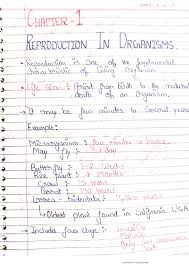 CHAPTER-1
REPRODUCTION IN ORGANISMS.
Reproduction is one of the fundamental
characteristic of living Organism
Life Span: Period from birth to the natural
death of an Organism.
It may be few minutes to Several years
Example:
Microorganism: few minutes to hours
May fly : 1 day
Butterfly : 1-2 Weeks
Rice plant : 4 Months
Crow : 15 years
Parrot : 140 years
Oldest plant found in California U.S.A
Includes four stage: